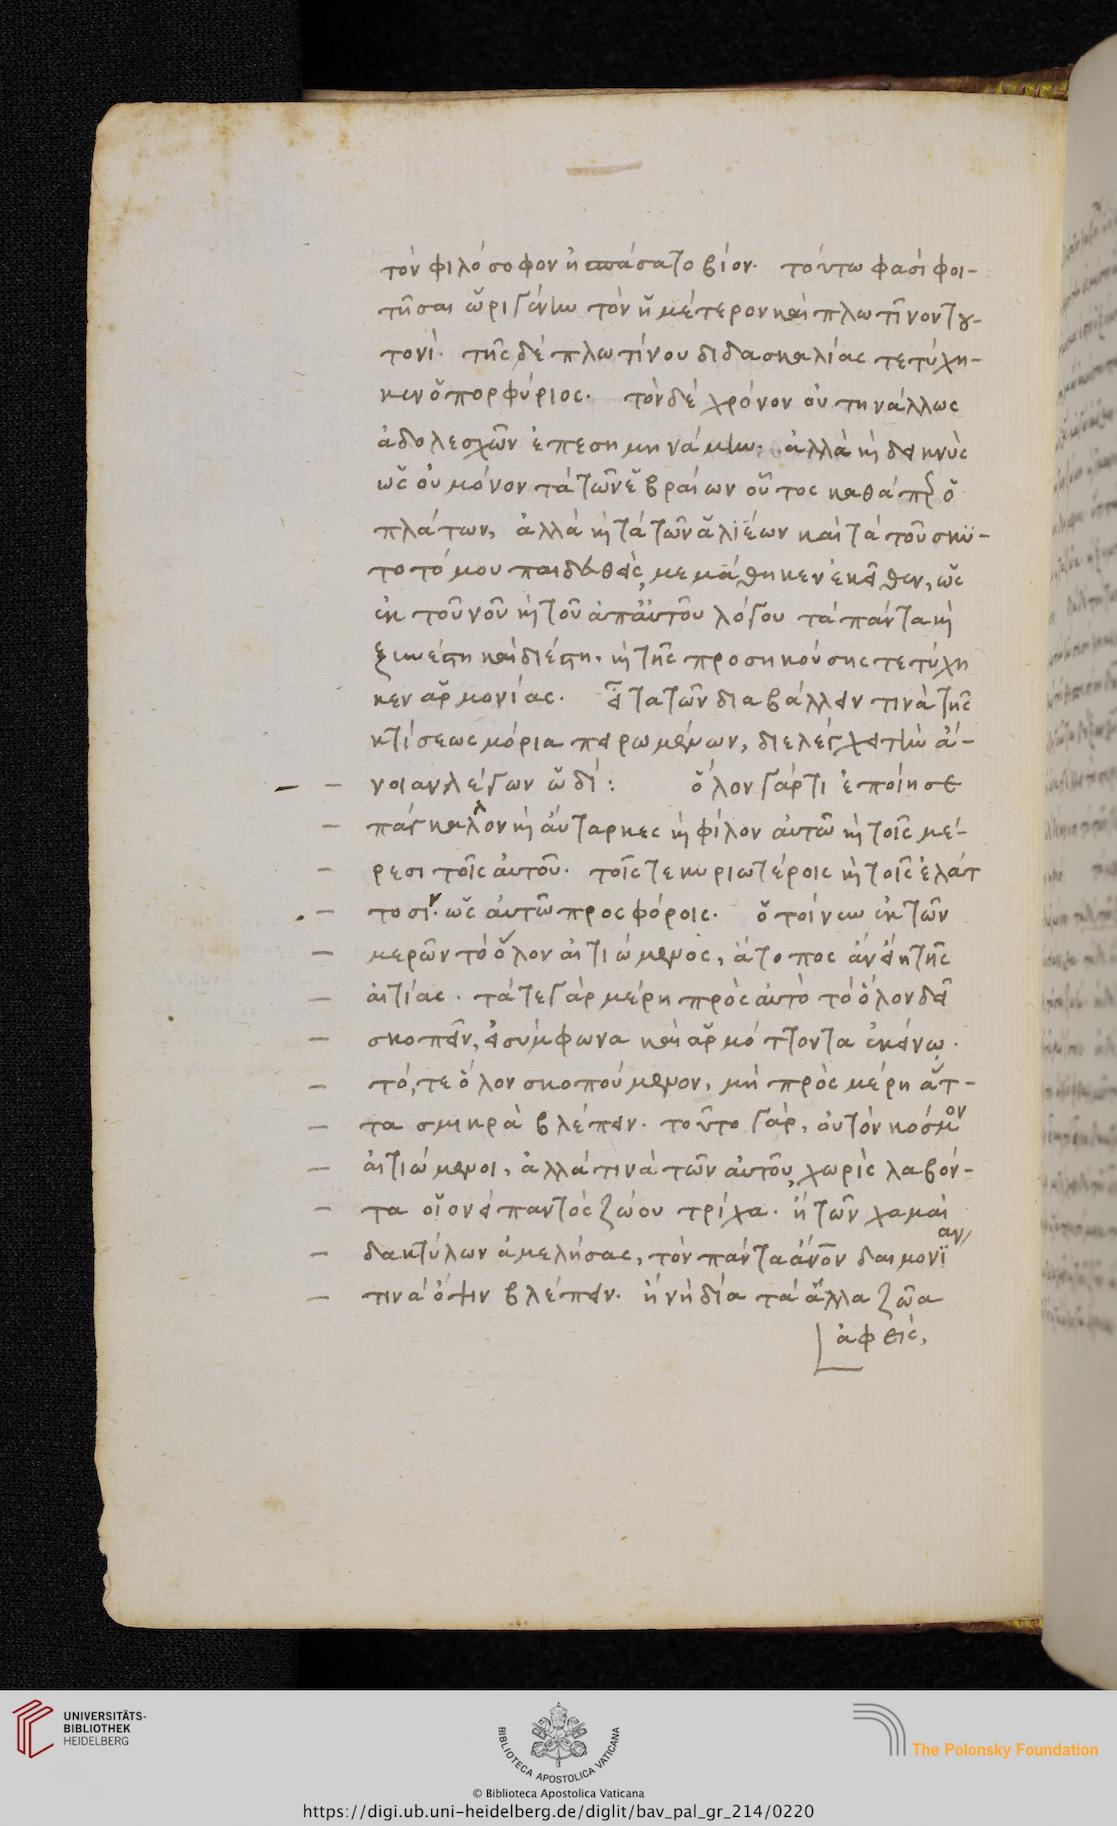 τὸν φιλόσοφον ἠσπάσατο βίον. τούτω φασὶ φοι-
τῆσαι ὠριγένην τὸν ἡμέτερον καὶ πλωτῖνον του-
τονί. τῆς δὲ πλωτίνου διδασκαλίας τετύχη-
κεν ὁ πορφύριος. τὸν δὲ χρόνον οὐ τηνάλλως
ἀδολεσχῶν ἐπεσημηνάμην. ἀλλὰ καὶ δεικνὺς
ὡς οὐ μόνον τὰ τῶν ἑβραίων οὗτος καθάπερ ὁ
πλάτων, ἀλλὰ καὶ τὰ τῶν ἁλιέων καὶ τὰ τοῦ σκυ-
τοτόμου παιδευθεὶς, μεμάθηκεν ἐκεῖθεν, ὡς
ἐκ τοῦ νοῦ καὶ τοῦ ἀπ' αὐτοῦ λόγου τὰ πάντα καὶ
ξυνέστη καὶ διέστη. καὶ τῆς προσηκούσης τετύχη
κεν ἁρμονίας. εἶτα τῶν διαβάλλειν τινὰ τῆς
κτίσεως μόρια πειρωμένων, διελέγχει τὴν ἄ-
νοιαν λέγων ὡδί: ὅλον γάρ τι ἐποίησε
πάγκαλον καὶ αὔταρκες καὶ φίλον αὐτῶ καὶ τοῖς μέ-
ρεσι τοῖς αὐτοῦ. τοῖς τε κυριωτέροις καὶ τοῖς ἐλάτ
τοσιν. ὡς αὐτῶ προσφόροις. ὁ τοίνυν ἐκ τῶν
μερῶν τὸ ὅλον αἰτιώμενος, ἄτοπος ἂν εἴη τῆς
αἰτίας. τά τε γὰρ μέρη πρὸς αὐτὸ τὸ ὅλον δεῖ
σκοπεῖν, εἰ σύμφωνα καὶ ἁρμόττοντα ἐκείνω.
τό, τε ὅλον σκοπούμενον, μὴ πρὸς μέρη ἄτ-
τα σμικρὰ βλέπειν. τοῦτο γάρ, οὐ τὸν κόσμον
αἰτιώμενοι, ἀλλά τινα τῶν αὐτοῦ, χωρὶς λαβόν-
τα οἷον εἰ παντὸς ζώου τρίχα. ἢ τῶν χαμαὶ
δακτύλων ἀμελήσας, τὸν πάντα ἄνον δαιμονίαν
τινὰ ὄψιν βλέπειν. ἢ νὴ δία τὰ ἄλλα ζῶα
ἀφεὶς,
UNIVERSITÄTS-
BIBLIOTHEK
HEIDELBERG
BIBLIOTECA APOSTOLICA VATICANA
The Polonsky Foundation
© Biblioteca Apostolica Vaticana
https://digi.ub.uni-heidelberg.de/diglit/bav_pal_gr_214/0220